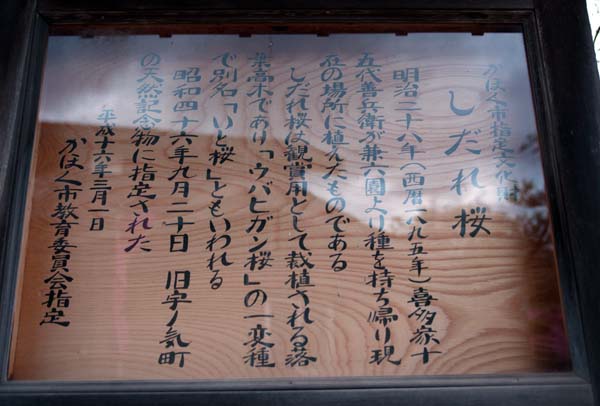 かほく市指定文化財
しだれ桜
明治二十八年(西暦一八九五年)喜多家十
五代善兵衛が兼六園より種を持ち帰り現
在の場所に植えたものである
しだれ桜は観賞用として栽植される落
葉高木であり「ウバヒガン桜」の一変種
で別名「いと桜」ともいわれる
昭和四十六年九月二十日 旧宇ノ気町
の天然記念物に指定された
平成十六年三月一日
かほく市教育委員会指定